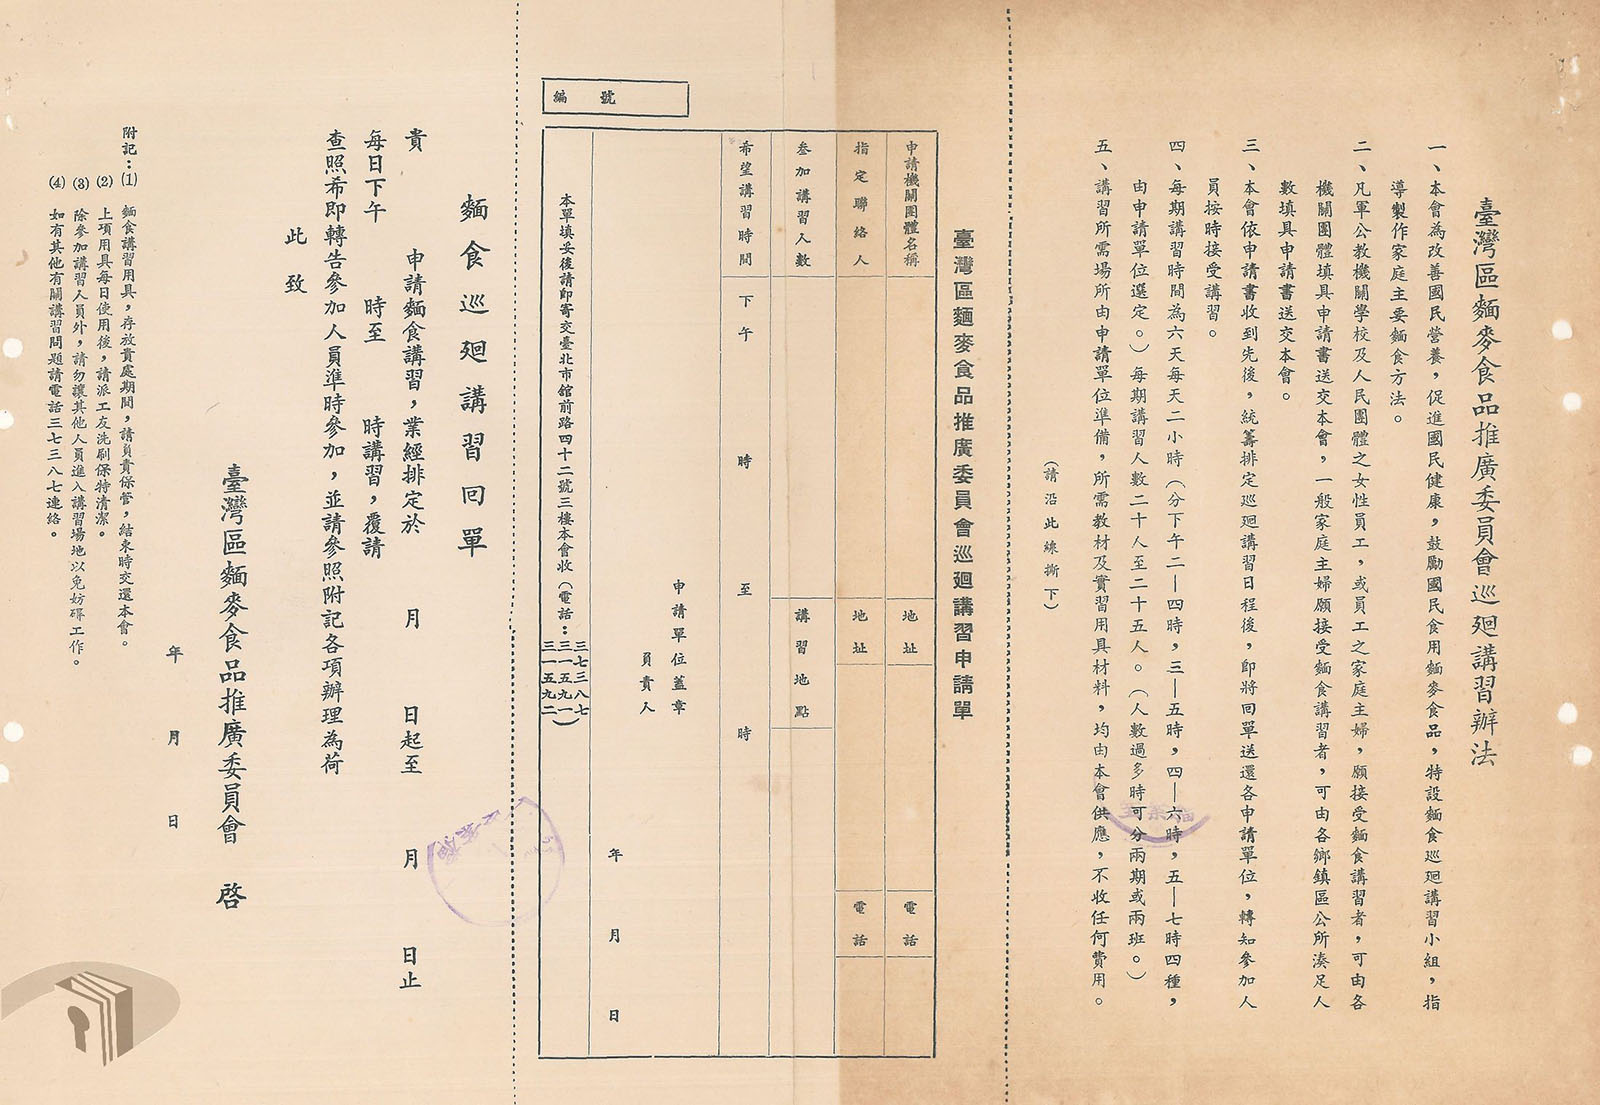 臺灣區麵麥食品推廣委員會巡廻講習辦法
一、本會為改善國民營養，促進國民健康，鼓勵國民食用麵麥食品，特設麵食巡廻講習小組，指
導製作家庭主要麵食方法。
二、凡軍公教機關學校及人民團體之女性員工，或員工之家庭主婦，願接受麵食講習者，可由各
機關團體填具申請書送交本會，一般家庭主婦願接受麵食講習者，可由各鄉鎮區公所湊足人
數填具申請書送交本會。
三、本會依申請書收到先後，統籌排定巡廻講習日程後，即將回單送還各申請單位，轉知參加人
員按時接受講習。
四、每期講習時間為六天每天二小時（分下午二—四時，三—五時，四—六時，五—七時四種，
由申請單位選定。）每期講習人數二十人至二十五人。（人數過多時可分兩期或兩班。）
五、講習所需場所由申請單位準備，所需教材及實習用具材料，均由本會供應，不收任何費用。
（請沿此線撕下）
臺灣區麵麥食品推廣委員會巡廻講習申請單
編號
申請機關團體名稱 地址 電話
指定聯絡人 地址 電話
叁加講習人數 講習地點
希望講習時間 下午 時 至 時
申請單位蓋章
員責人
年 月 日
本單填妥後請即寄交臺北市舘前路四十二號三樓本會收（電話：三七三八七
三一五九一
三一五九二）
麵食巡廻講習回單
貴 申請麵食講習，業經排定於 月 日起至 月 日止
每日下午 時至 時講習，覆請
查照希即轉告參加人員準時參加，並請參照附記各項辦理為荷
此致
臺灣區麵麥食品推廣委員會 啓
年 月 日
附記：(1) 麵食講習用具，存放貴處期間，請負責保管，結束時交還本會。
(2) 上項用具每日使用後，請派工友洗刷保特清潔。
(3) 除參加講習人員外，請勿讓其他人員進入講習場地以免妨碍工作。
(4) 如有其他有關講習問題請電話三七三八七連絡。